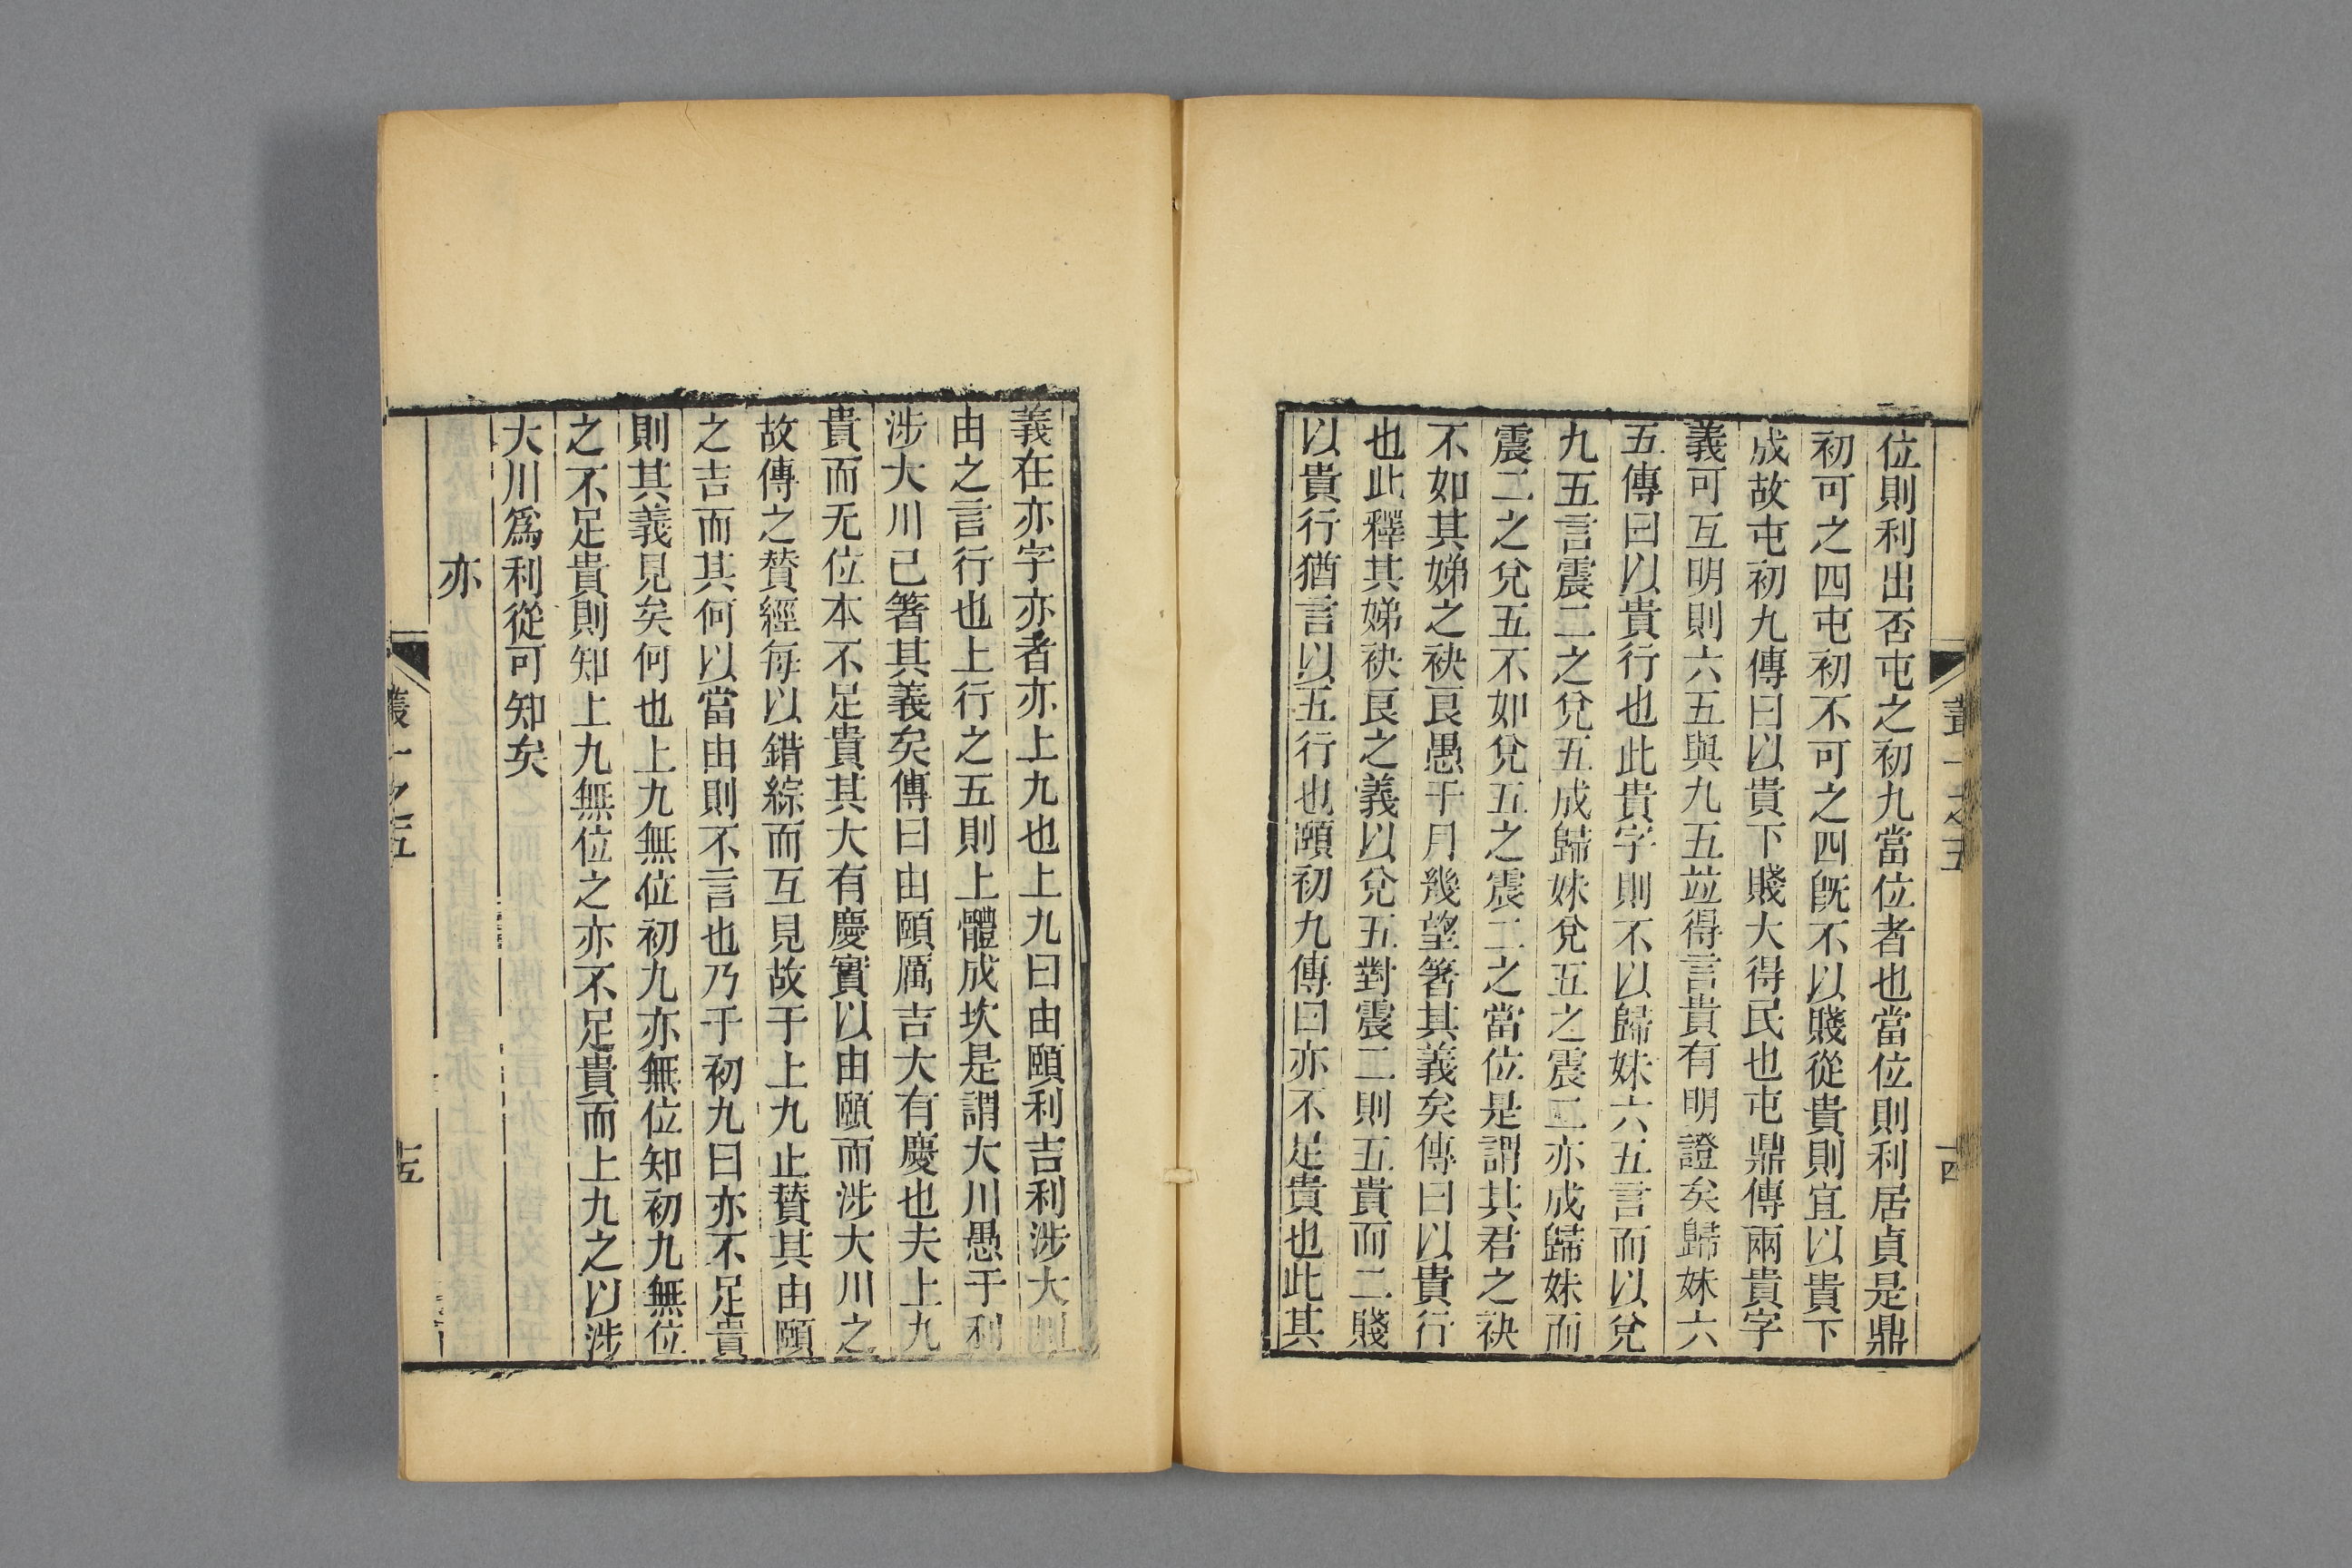 位則利出否屯之初九當位者也當位則利居貞是鼎
初可之四屯初不可之四旣不以賤從貴則宜以貴下
成故屯初九傳曰以貴下賤大得民也屯鼎傳兩貴字
義可互明則六五與九五竝得言貴有明證矣歸妹六
五傳曰以貴行也此貴字則不以歸妹六五言而以兌
九五言震二之兌五成歸妹兌五之震二亦成歸妹而
震二之兌五不如兌五之震二之當位是謂其君之袂
不如其娣之袂良愚于月幾望箸其義矣傳曰以貴行
也此釋其娣袂良之義以兌五對震二則五貴而二賤
以貴行猶言以五行也頤初九傳曰亦不足貴也此其
義在亦字亦者亦上九也上九曰由頤利吉利涉大川
由之言行也上行之五則上體成坎是謂大川愚于利
涉大川已箸其義矣傳曰由頤厲吉大有慶也夫上九
貴而无位本不足貴其大有慶實以由頤而涉大川之
故傳之贊經每以錯綜而互見故于上九止贊其由頤
之吉而其何以當由則不言也乃于初九曰亦不足貴
則其義見矣何也上九無位初九亦無位知初九無位
之不足貴則知上九無位之亦不足貴而上九之以涉
大川爲利從可知矣
亦
叢一之五
十五